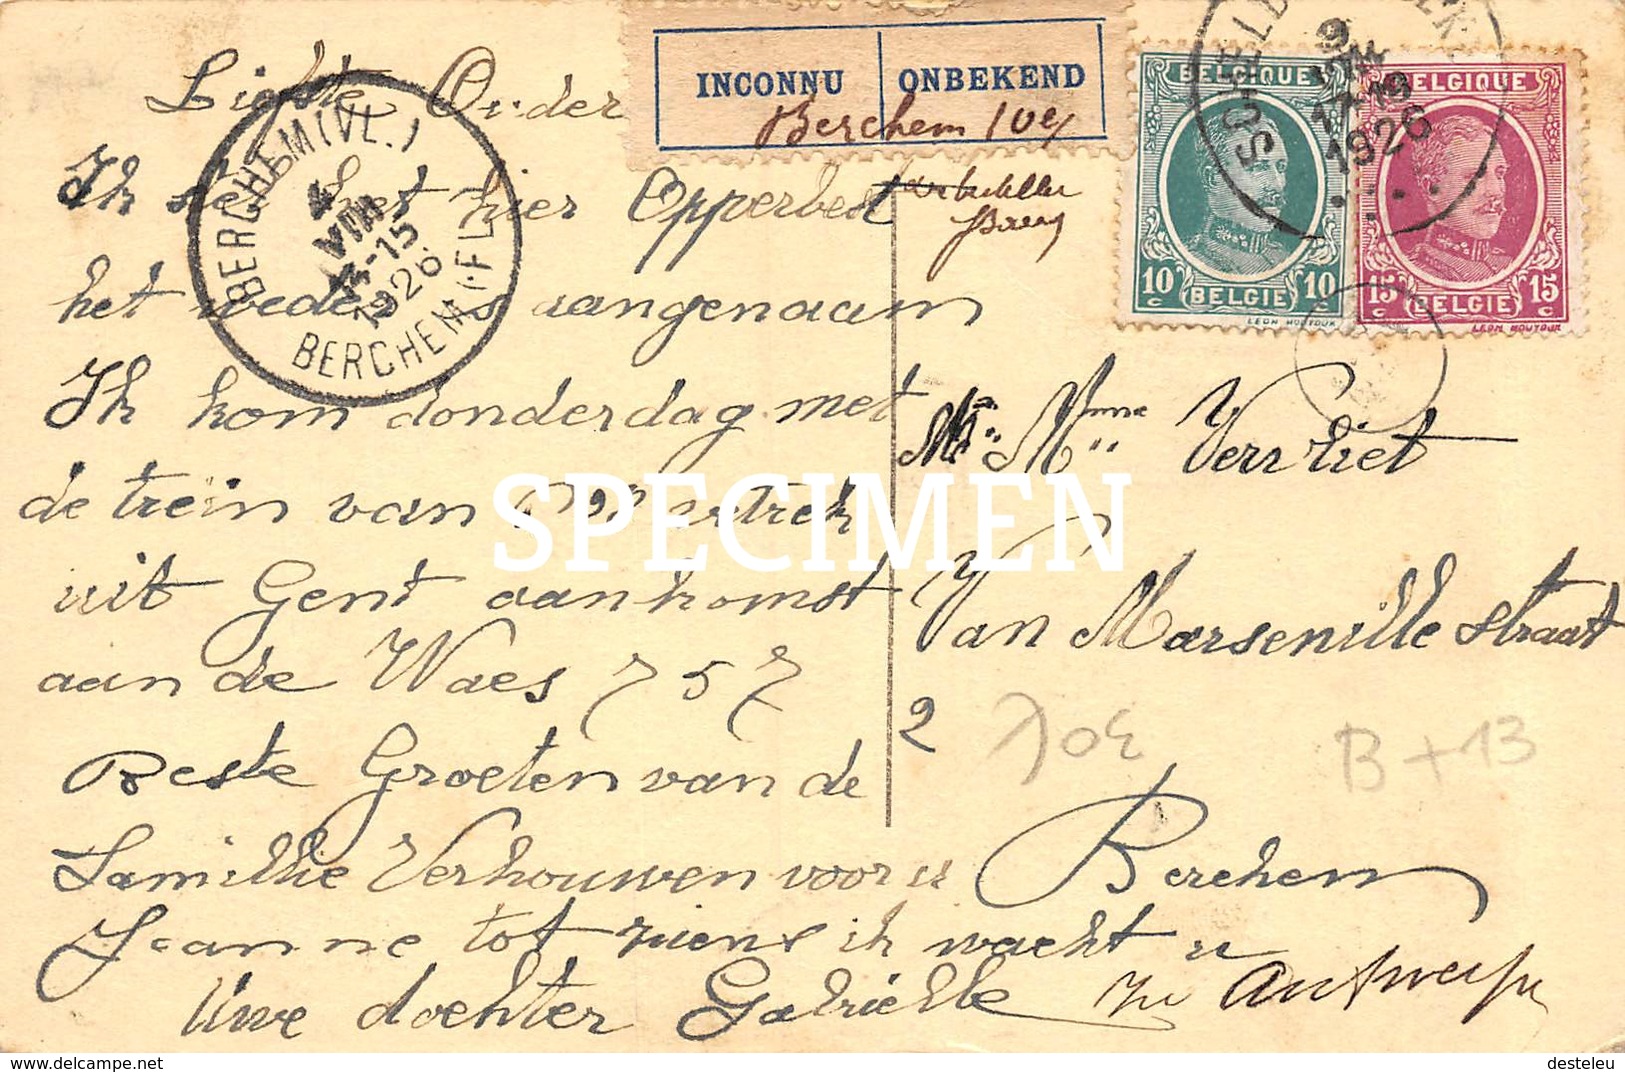 Liefste Ouder
Ik stel het hier Opperbest
het weder is aangenaam
Ik kom donderdag met
de trein van vertrek
uit Gent aankomst
aan de Waes 7 5 7
Beste Groeten van de
Familie Verhouwen voor u
Jeanne tot ziens ik wacht u
Uwe dochter Gabrielle
BERCHEM (VL.)
4
VIII
-15
1926
BERCHEM (FL.)
INCONNU ONBEKEND
Berchem
BELGIQUE
10 c 10 c
BELGIE
BELGIQUE
15 c 15 c
BELGIE
17-19
1926
Mr Mme Vervliet
Van Marsenille Straat
2
Berchem
Antwerpen
B + 13
SPECIMEN
https://www.delcampe.net
desteleu